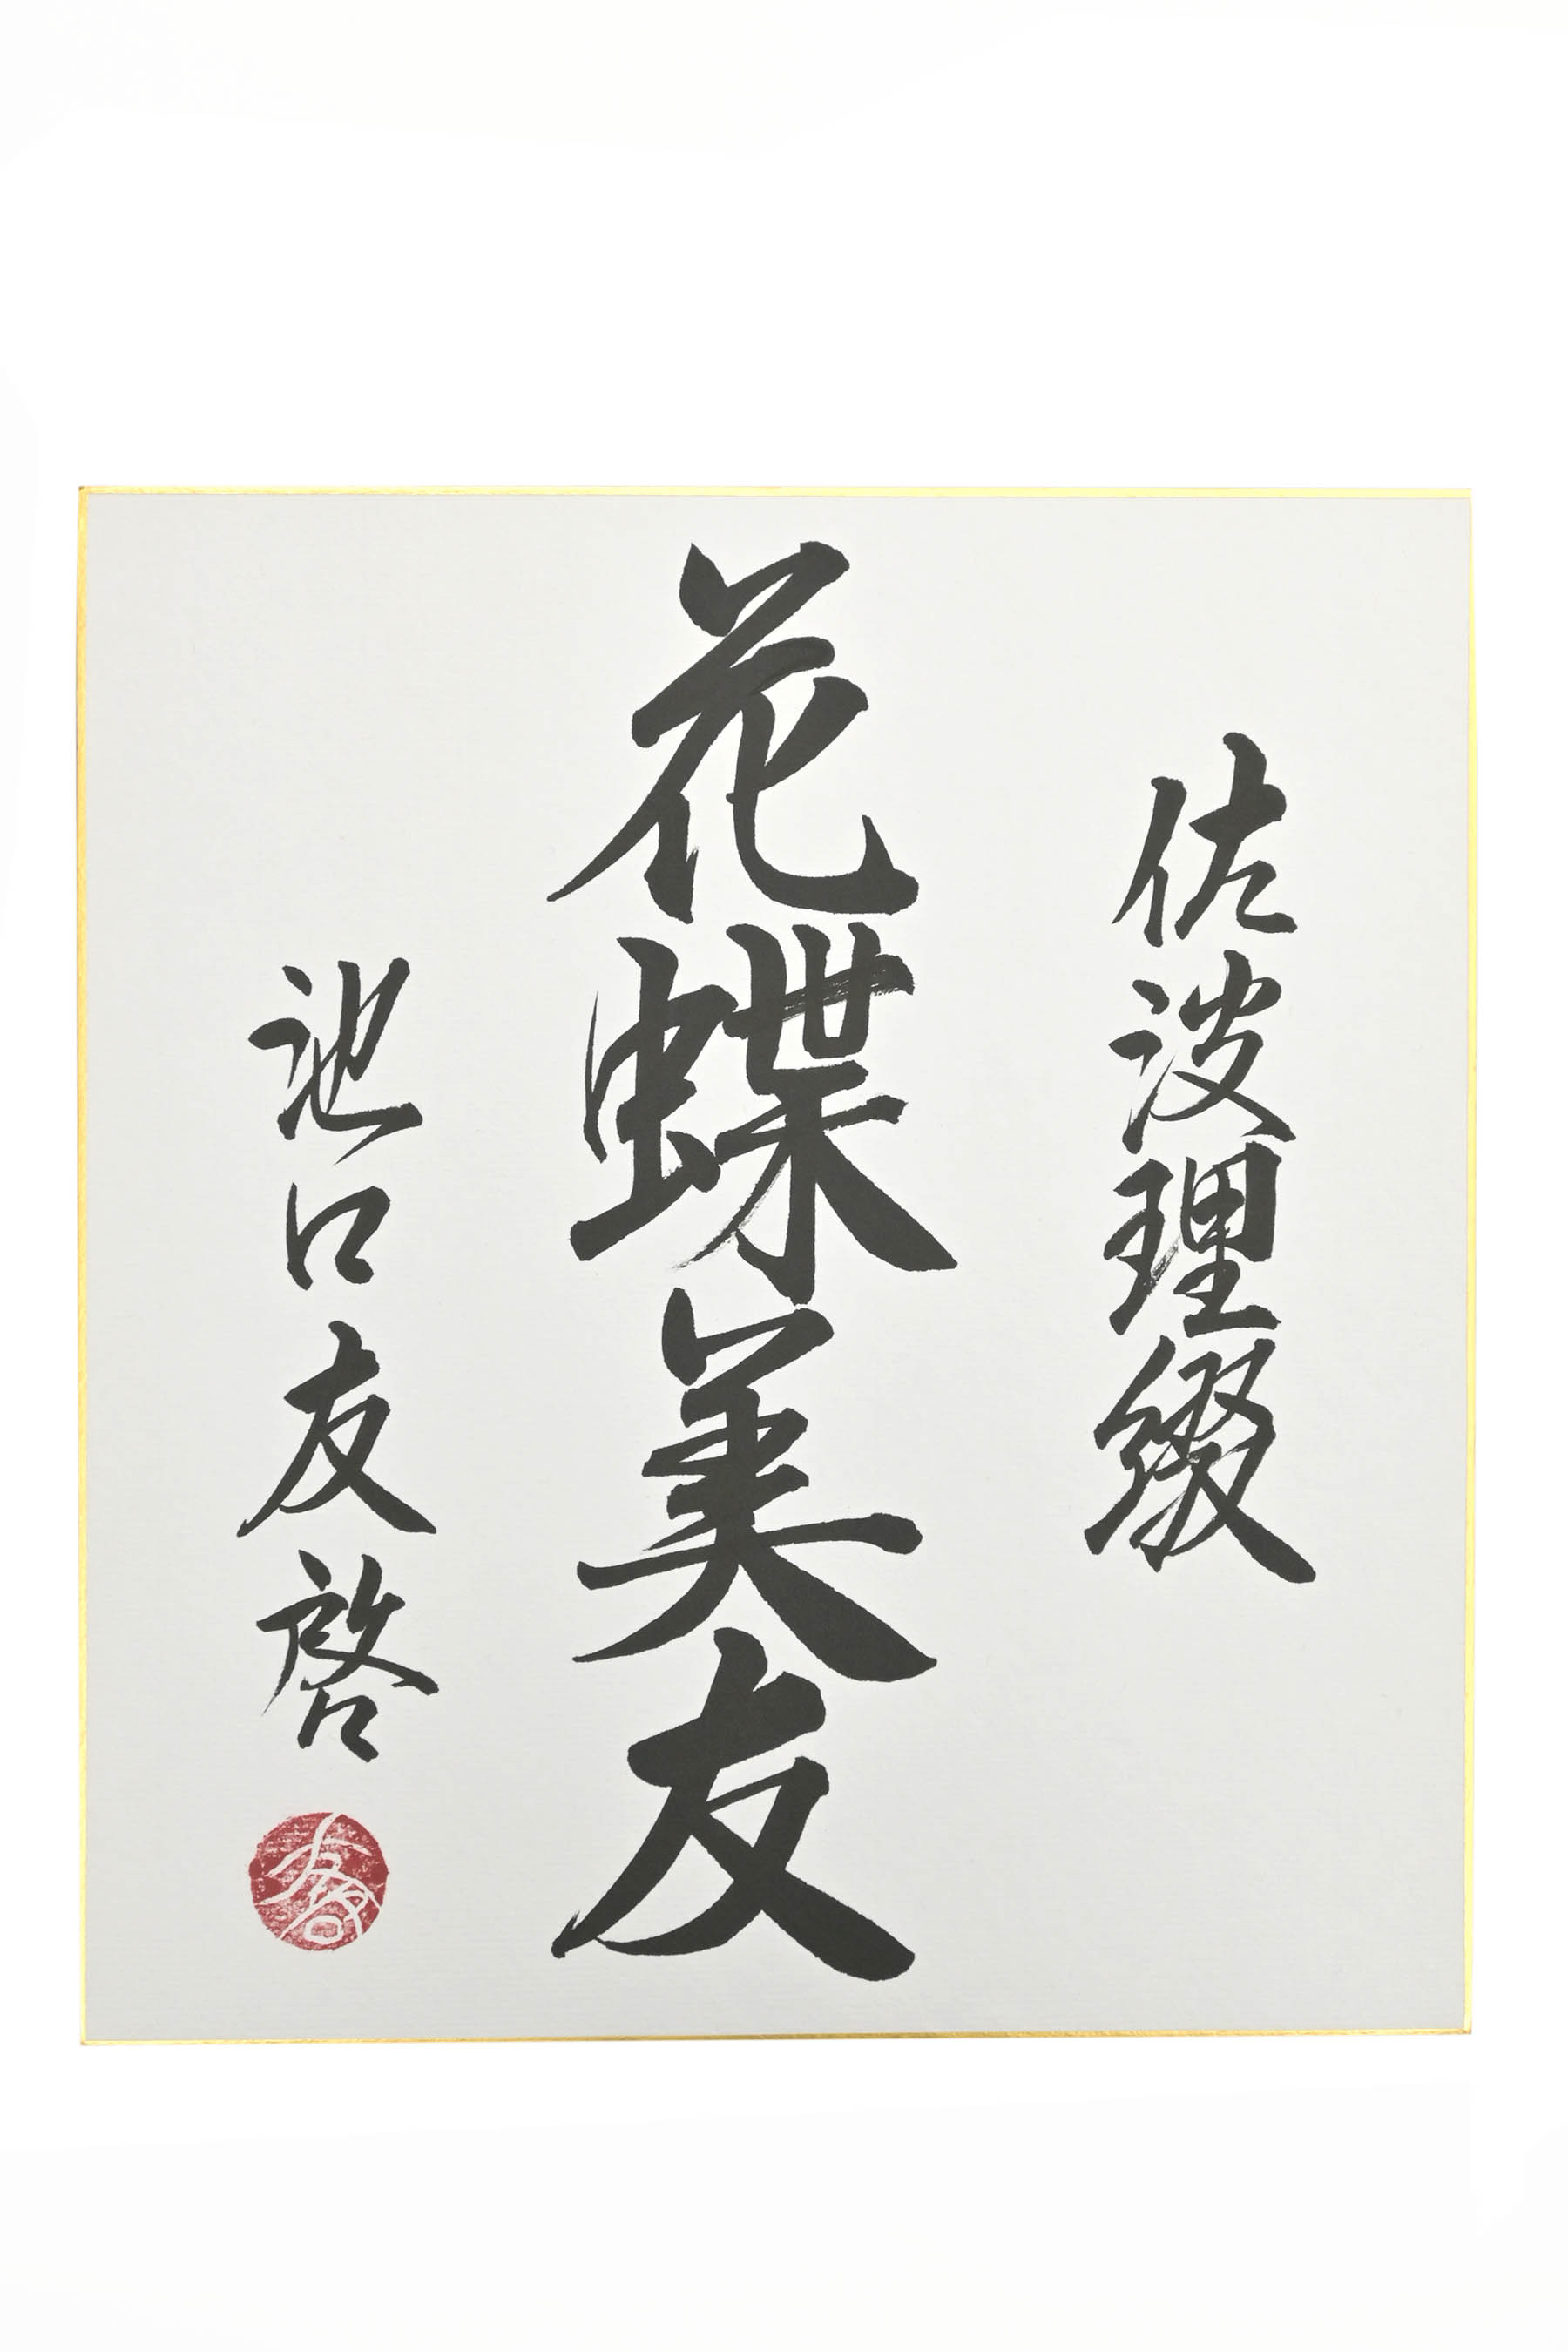 佐波理綴
花蝶美友
池口友啓